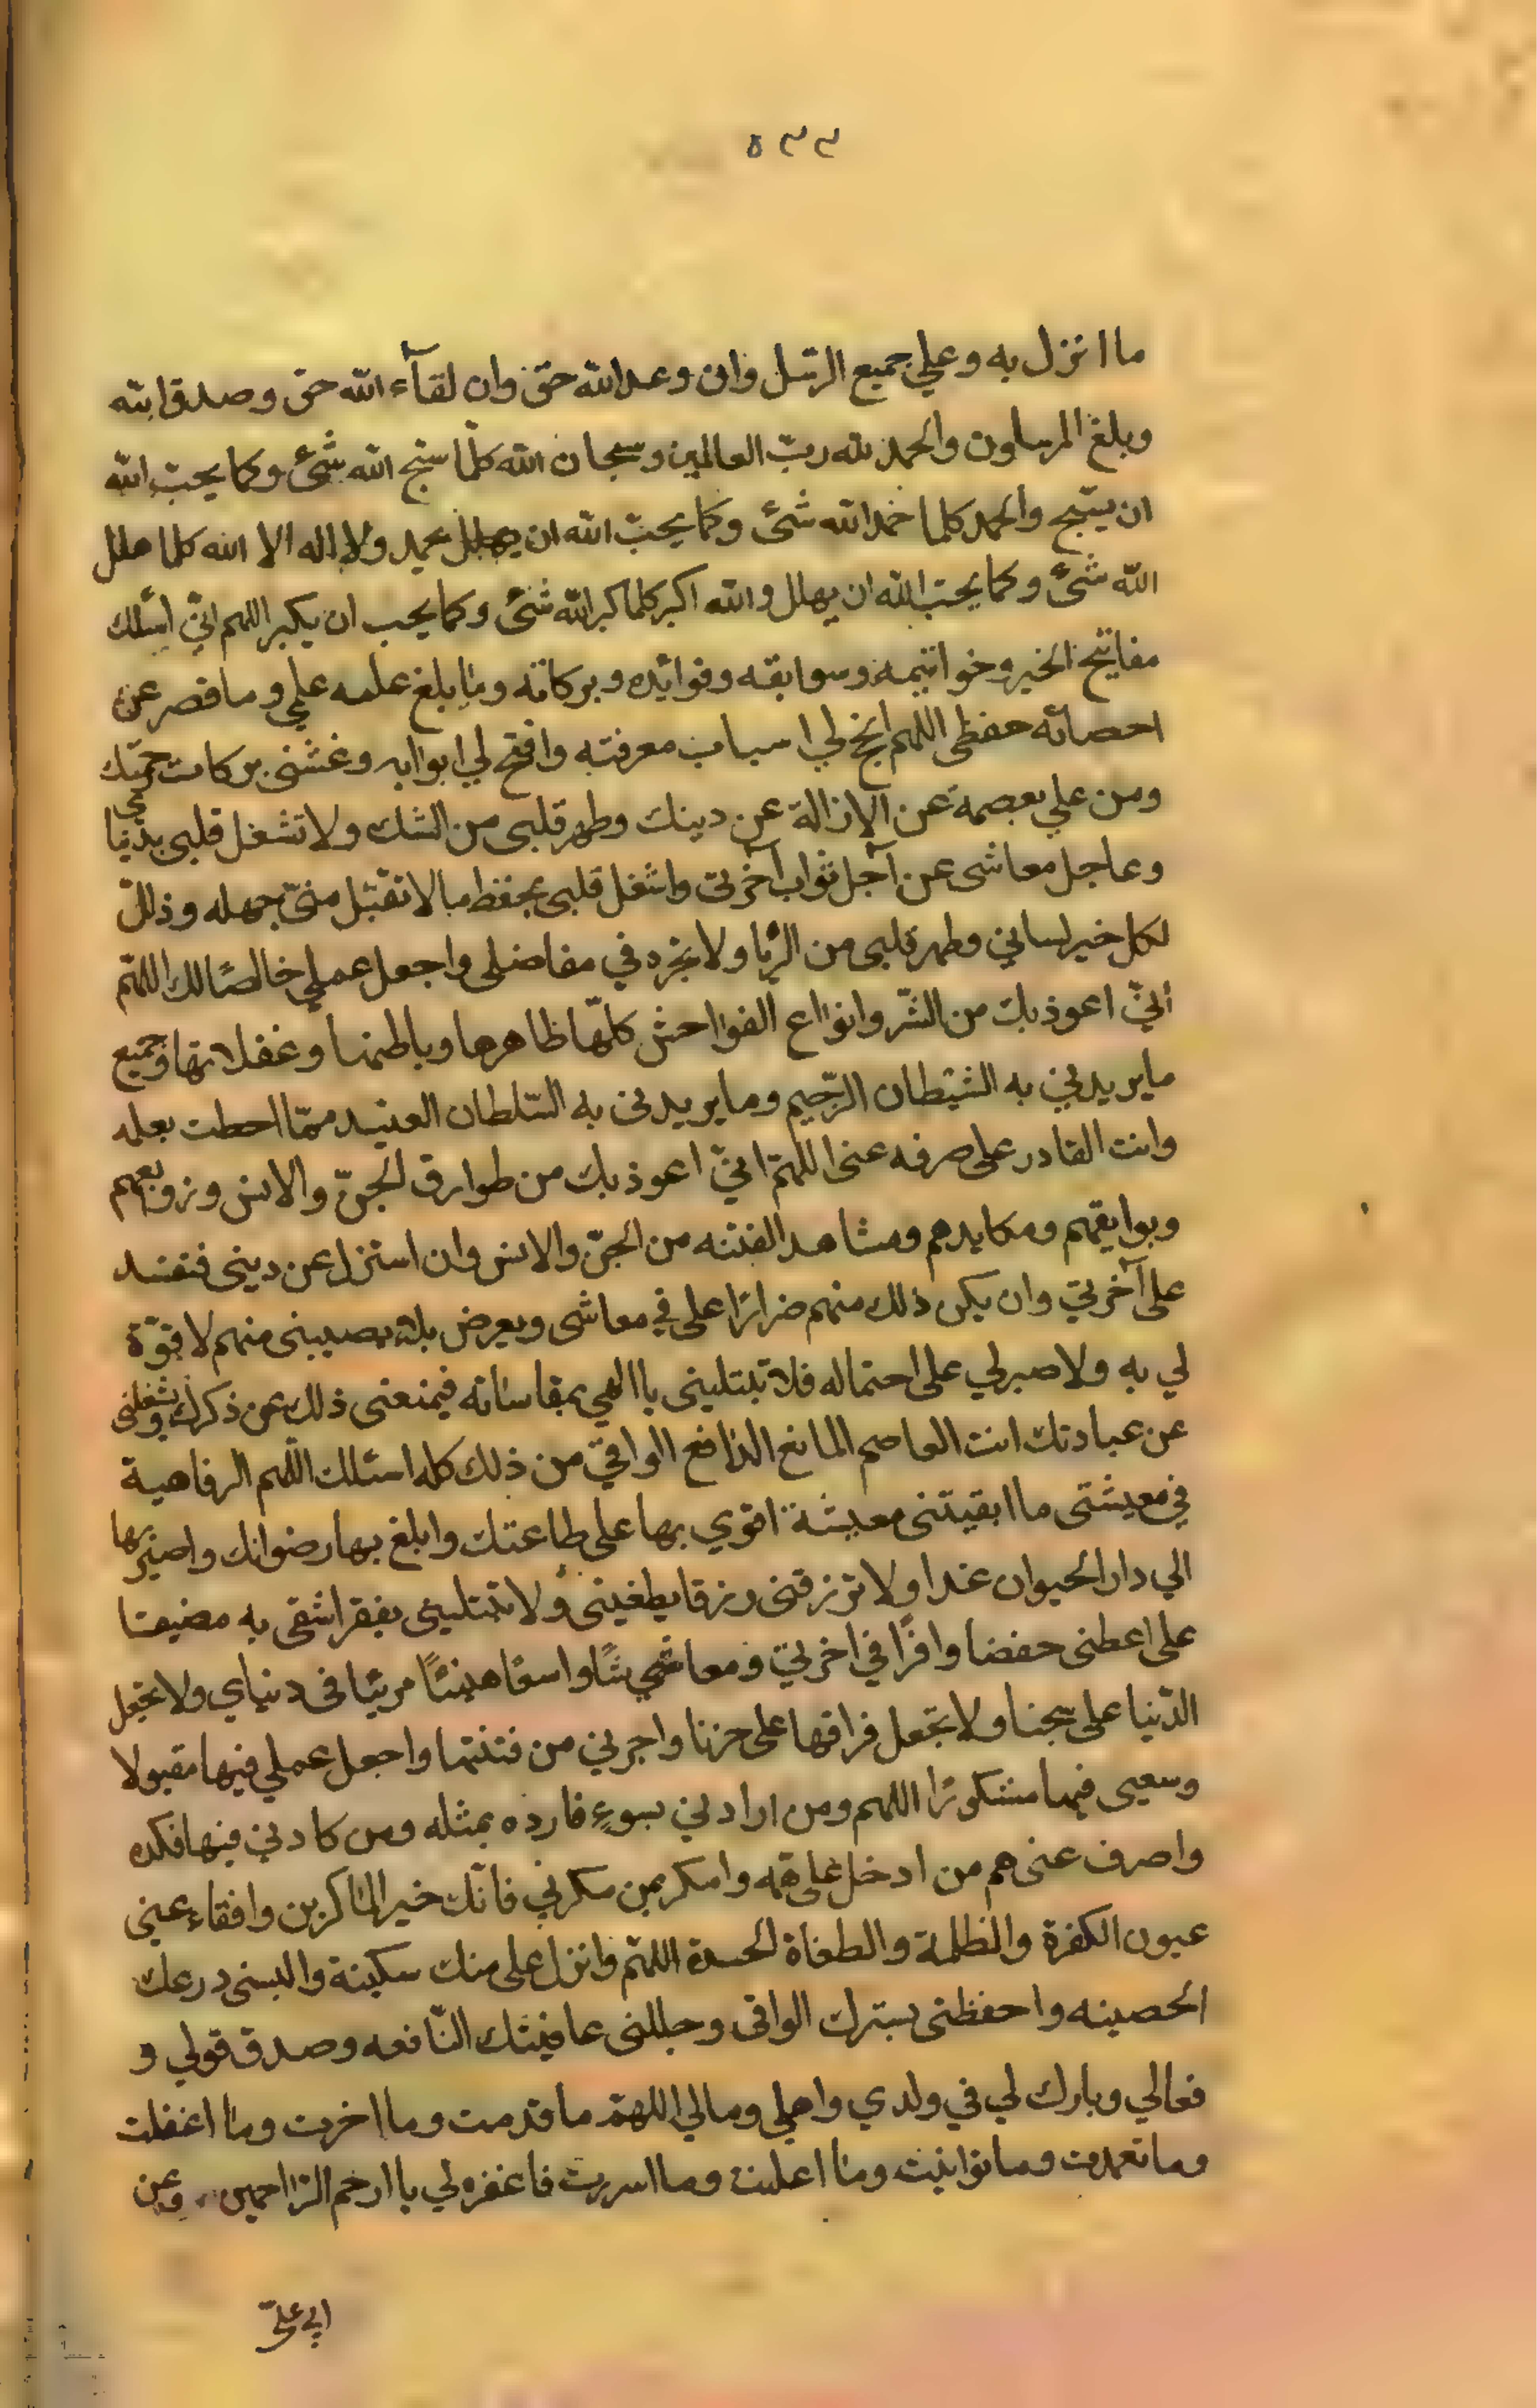 ٥٣٣
ما انزل به وعلي جميع الرّسل وان وعد الله حق وان لقآء الله حق وصدق الله
وبلغ المرسلون والحمد لله ربّ العالمين وسبحان الله كلّما سبّح الله شئ وكما يحبّ الله
ان يسبّح والحمد كلما حمد الله شئ وكما يحبّ الله ان يحمد ولا اله الا الله كلما هلل
الله شئ وكما يحب الله ان يهلل والله اكبر كلما كبر الله شئ وكما يحب ان يكبر اللهم انّي اسئلك
مفاتيح الخير وخواتيمه وسوابقه وفوائده وبركاته وما بلغ علمه علمي وما قصر عن
احصائه حفظي اللهم انهج لي اسباب معرفته وافتح لي ابوابه وغشني بركات رحمتك
ومن علي بعصمة عن الازالة عن دينك وطهر قلبي من الشك ولا تشغل قلبي بدنياي
وعاجل معاشي عن آجل ثواب آخرتي واشغل قلبي بحفظ ما لا تقبّل منّي جهله وذلل
لكل خير لساني وطهر قلبي من الرّيا ولا تجره في مفاصلي واجعل عملي خالصًا لك اللهمّ
انّي اعوذ بك من الشّر وانواع الفواحش كلّها ظاهرها وباطنها وغفلاتها وجميع
ما يريدني به الشيطان الرّجيم وما يريدني به السّلطان العنيد ممّا احطت بعلمه
وانت القادر على صرفه عني اللهمّ انيّ اعوذ بك من طوارق الجنّ والانس وزوبعهم
وبوايقهم ومكايدهم ومشاهد الفتنه من الجنّ والانس وان استزل عن ديني فتفسد
على آخرتي وان يكن ذلك منهم ضرارًا على في معاشي وبعرض بلاء يصيبني منهم لا قوّة
لي به ولا صبر لي على احتماله فلا تبتليني يا الهي بمقاساته فيمنعني ذلك عن ذكرك ويشغلني
عن عبادتك انت العاصم المانع الدافع الواقي من ذلك كله اسئلك اللّهم الرفاهية
في معيشتي ما ابقيتني معيشة اقوي بها على طاعتك وابلغ بها رضوانك واصير بها
الي دار الحيوان غدا ولا ترزقني رزقا يطغيني ولا تبتليني بفقر اشقي به مضيقا
على اعطني حفضا وافرًا في اخرتي ومعاشي شًا واسعًا هنيئًا مريئا في دنياي ولا تجعل
الدّنيا على سجنا ولا تجعل فراقها على حزنا واجرني من فتنتها واجعل عملي فيها مقبولا
وسعيي فيها مشكورًا اللهم ومن ارادني بسوءٍ فارده بمثله ومن كادني فيها فكده
واصرف عني هم من ادخل على همه وامكر بمن مكرني فانّك خير الماكرين وافقاء عيني
عيون الكفرة والظلمة والطغاة الحسدة اللهمّ وانزل على منك سكينة والبسني درعك
الحصينه واحفظني بسترك الواقي وجللني عافيتك النّافعه وصدق قولي و
فعالي وبارك لي في ولدي واهلي ومالي اللهمّ ما قدمت وما اخرت وما اغفلت
وما تعمدت وما توانيت وما اعلنت وما اسررت فاغفره لي يا ارحم الرّاحمين وعن
ابي عليّ